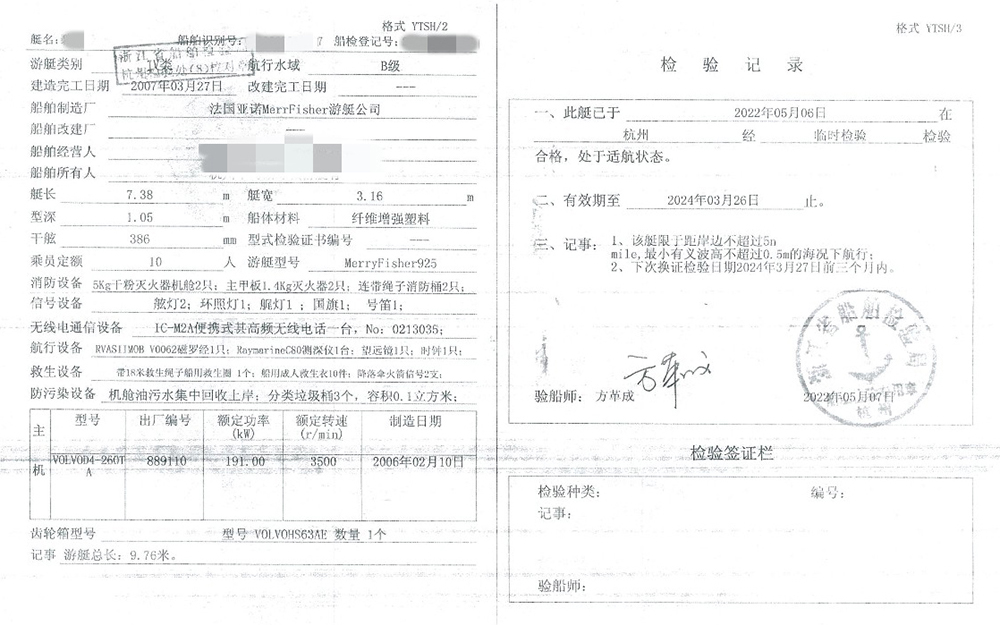 格式 YTSH/2
艇名:
船舶识别号:
船检登记号:
浙江省船舶检验
游艇类别 IV类 航行水域 B级
建造完工日期 2007年03月27日 改建完工日期 ---
船舶制造厂 法国亚诺MerrFisher游艇公司
船舶改建厂 ---
船舶经营人
船舶所有人
艇长 7.38 m 艇宽 3.16 m
型深 1.05 m 船体材料 纤维增强塑料
干舷 386 mm 型式检验证书编号 ---
乘员定额 10 人 游艇型号 MerryFisher925
消防设备 5Kg干粉灭火器机舱2只; 主甲板1.4Kg灭火器2只; 连带绳子消防桶2只;
信号设备 舷灯2; 环照灯1; 艉灯1 ; 国旗1; 号笛1;
无线电通信设备 IC-M2A便携式甚高频无线电话一台, No: 0213035;
航行设备 RVASIIMOB V0062磁罗经1只; RaymarineC80测深仪1台; 望远镜1只; 时钟1只;
救生设备 带18米救生绳子船用救生圈 1个; 船用成人救生衣10件; 降落伞火箭信号2支;
防污染设备 机舱油污水集中回收上岸; 分类垃圾桶3个, 容积0.1立方米;
主机 型号 出厂编号 额定功率 额定转速 制造日期
(kW) (r/min)
VOLVOD4-260T 889110 191.00 3500 2006年02月10日
A
齿轮箱型号 型号 VOLVOHS63AE 数量 1个
记事 游艇总长: 9.76米。
格式 YTSH/3
检 验 记 录
一、此艇已于 2022年05月06日 在
杭州 经 临时检验 检验
合格，处于适航状态。
二、有效期至 2024年03月26日 止。
三、记事: 1、该艇限于距岸边不超过5n
mile,最小有义波高不超过0.5m的海况下航行;
2、下次换证检验日期2024年3月27日前三个月内。
浙江省船舶检验局
杭州
验船师: 方革成 2022年05月07日
检验签证栏
检验种类: 编号:
记事:
验船师: